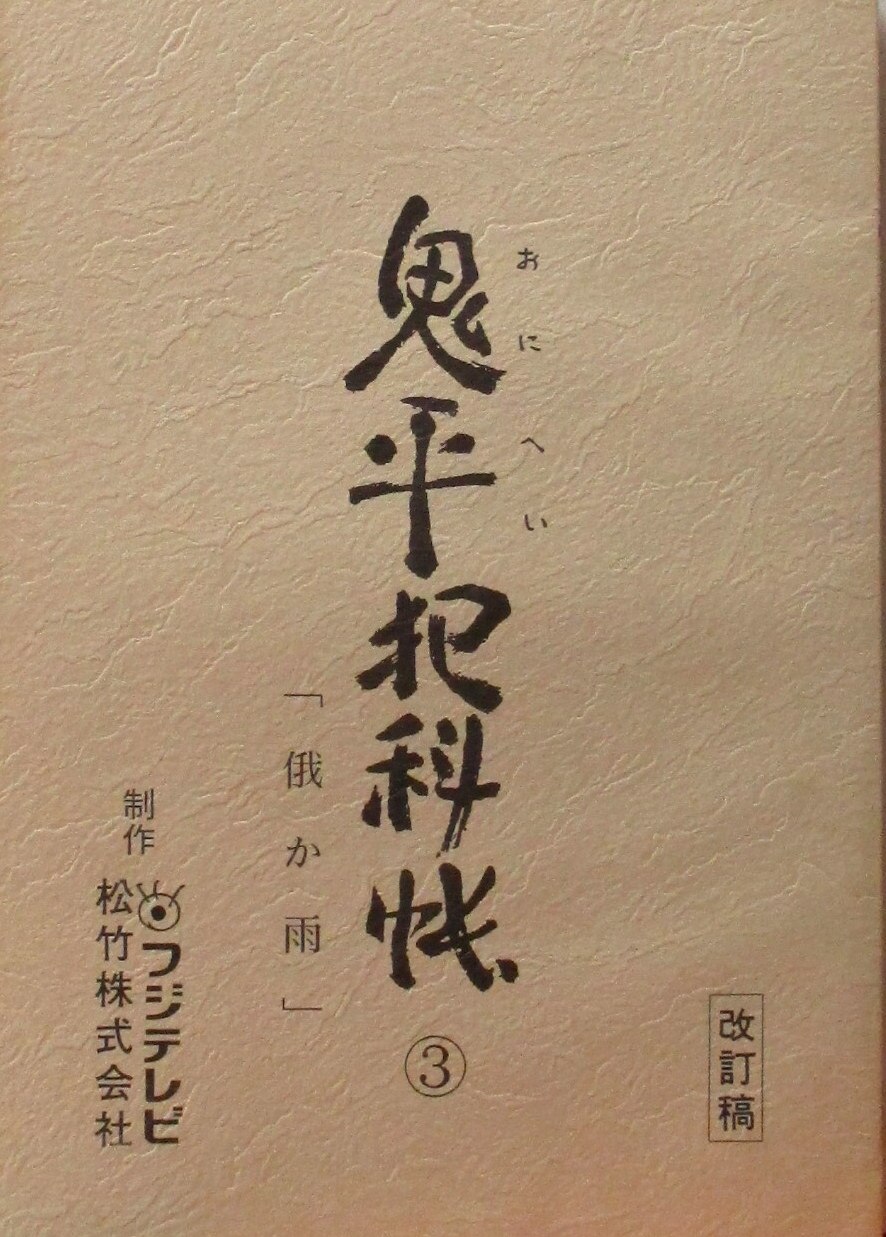 改訂稿
おにへい
鬼平犯科帳
③
「俄か雨」
制作
フジテレビ
松竹株式会社